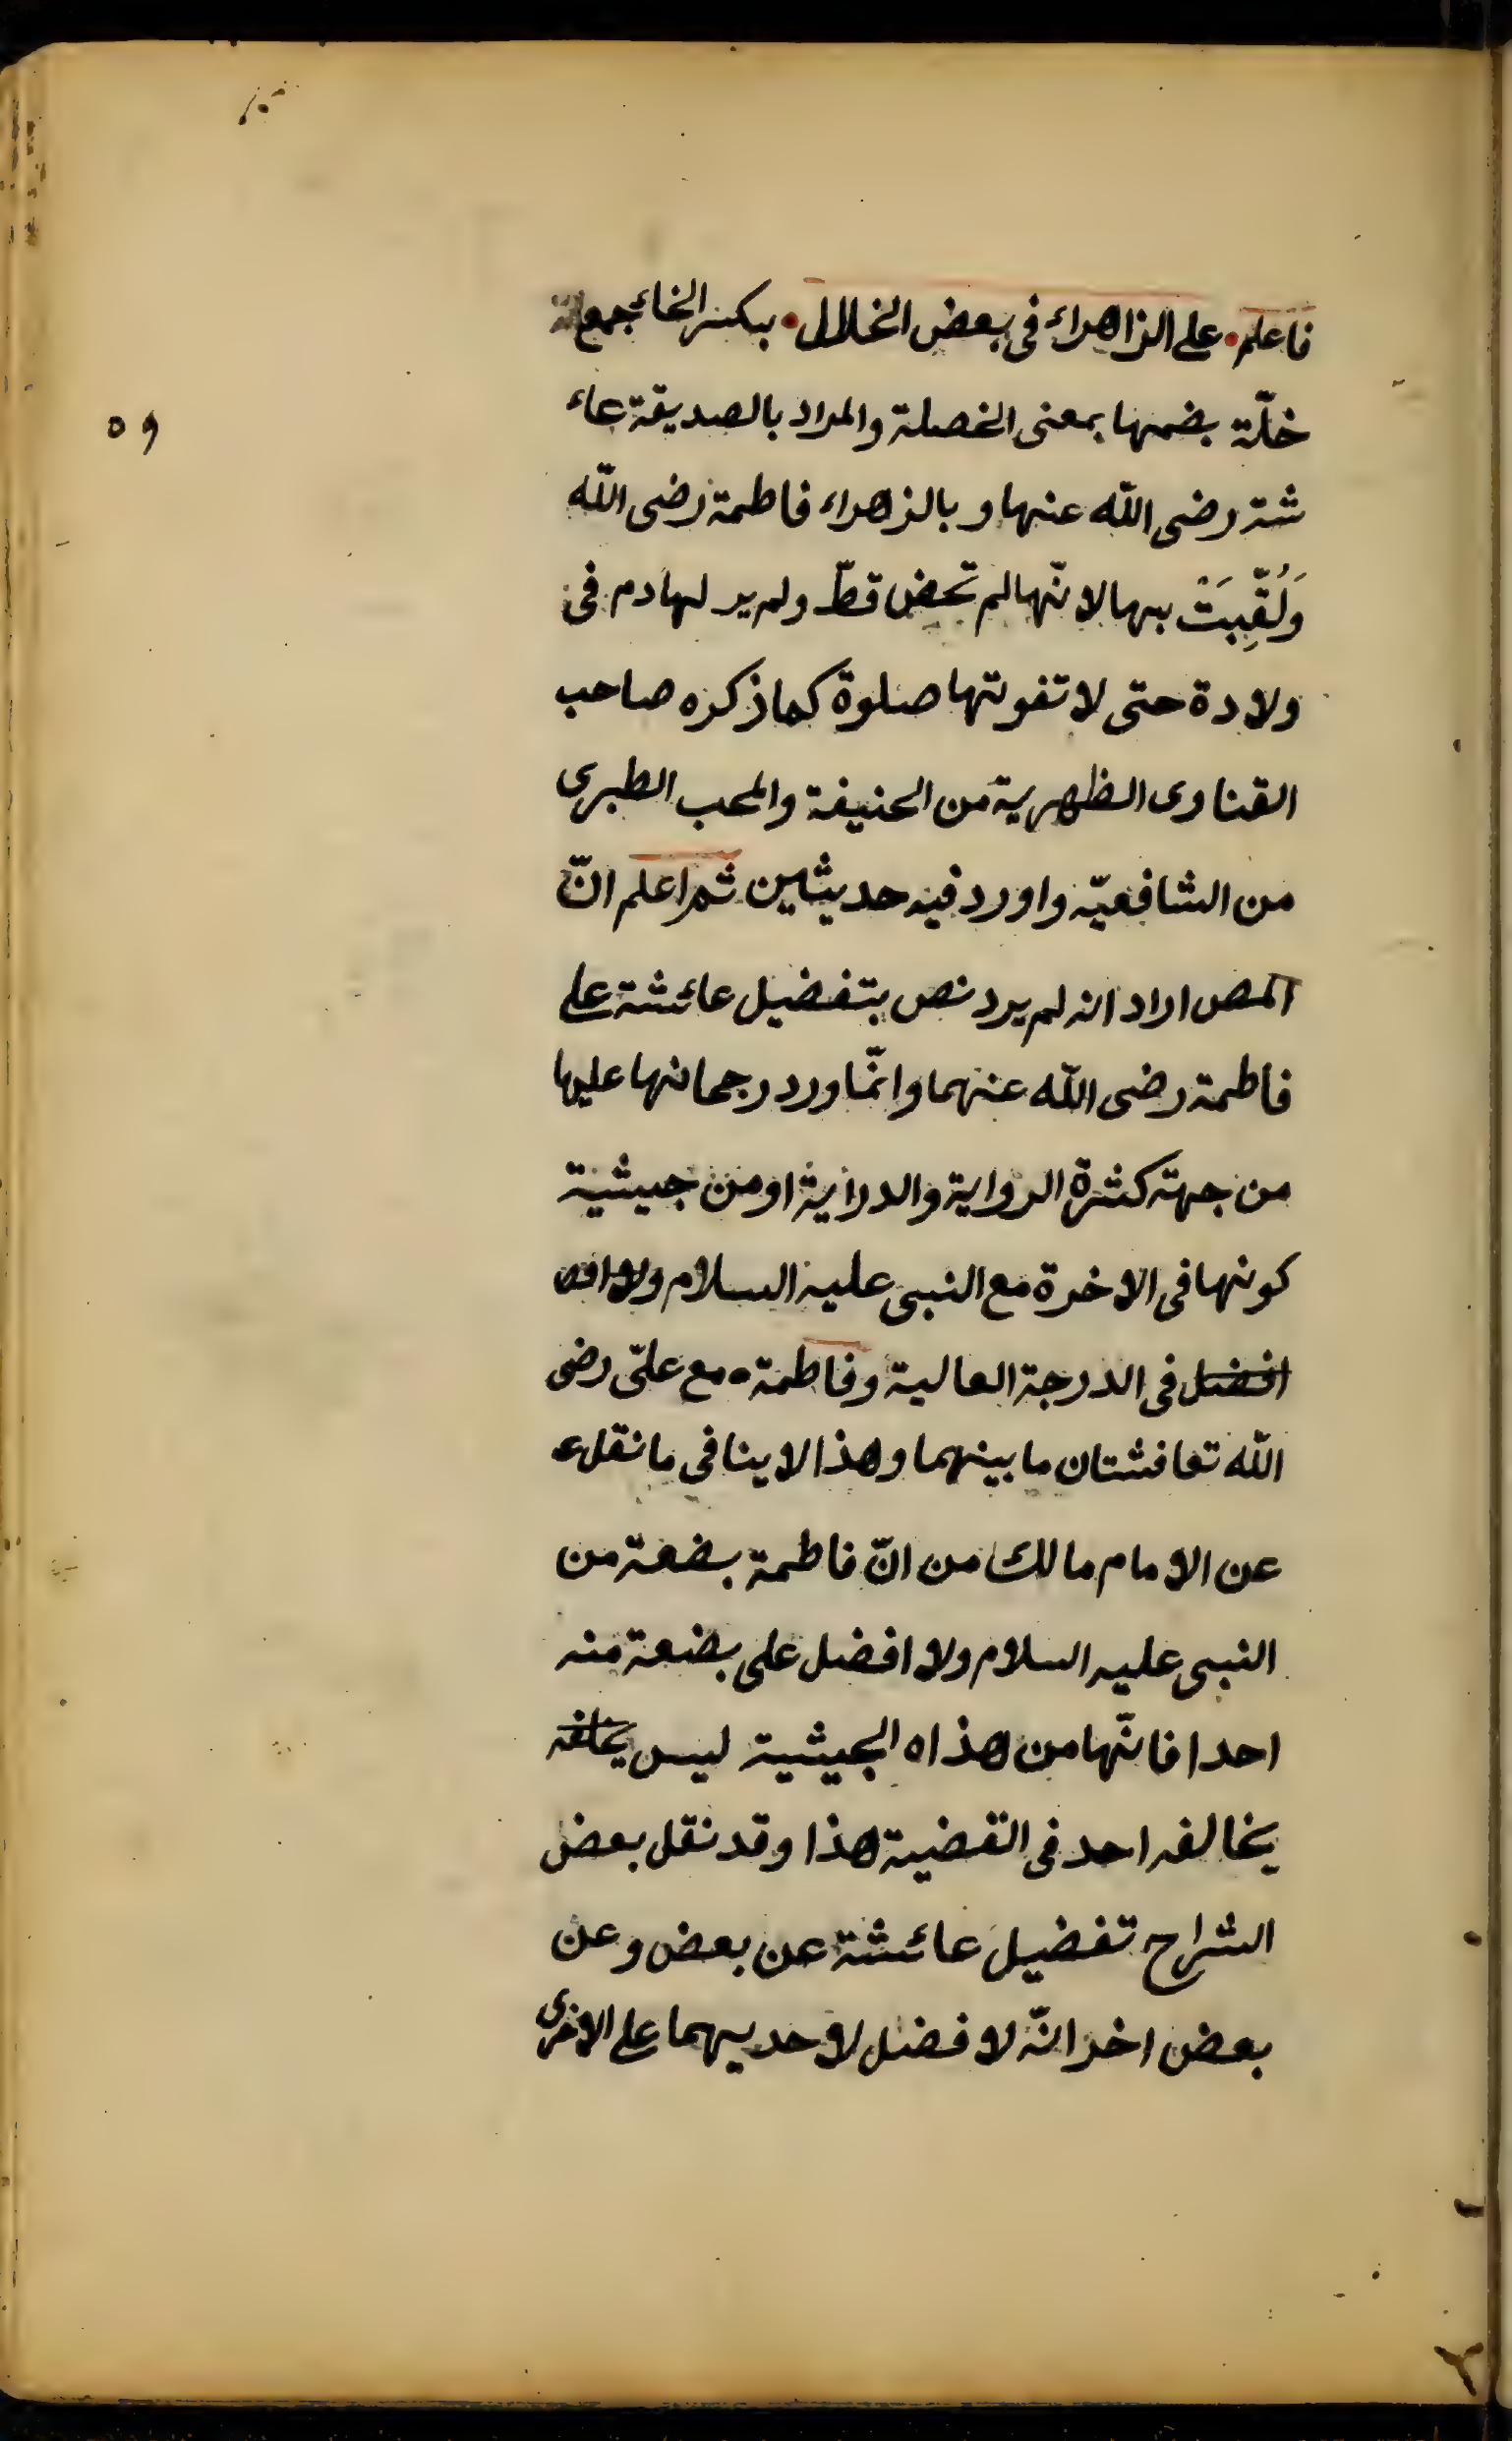 فاعلم. على الزاهراء فى بعض الخلال. بكسر الخاء جمع
خلّة بضمها بمعنى الخصلة والمراد بالصديقة عاء
شة رضى الله عنها وبالزهراء فاطمة رضى الله
وَلُقِّبَتْ بها لانّها لم تحض قطّ ولم ير لها دم فى
ولادة حتى لا تفوتها صلوة كما ذكره صاحب
القناوى الظهرية من الحنيفة والمحب الطبرى
من الشافعيّة واورد فيه حديثين ثم اعلم انّ
المص اراد انه لم يرد نص بتفضيل عائشة على
فاطمة رضى الله عنهما وانّما ورد رجحانها عليها
من جهة كثرة الرواية والدراية او من حيثية
كونها فى الاخرة مع النبى عليه السلام ولا افض
افضل فى الدرجة العالية وفاطمة ٠ مع علىّ رضى
الله تعا فشتان ما بينهما وهذا لا ينافى ما نقل ع
عن الامام مالك من انّ فاطمة بضعة من
النبى عليه السلام ولا افضل على بضعة منه
احدا فانّها من هذاه الحيثية ليس يخالفه
يخالفه احد فى القضية هذا وقد نقل بعض
الشراح تفضيل عائشة عن بعض وعن
بعض اخر انّه لا فضل لاحديهما على الاخرى
٥٩